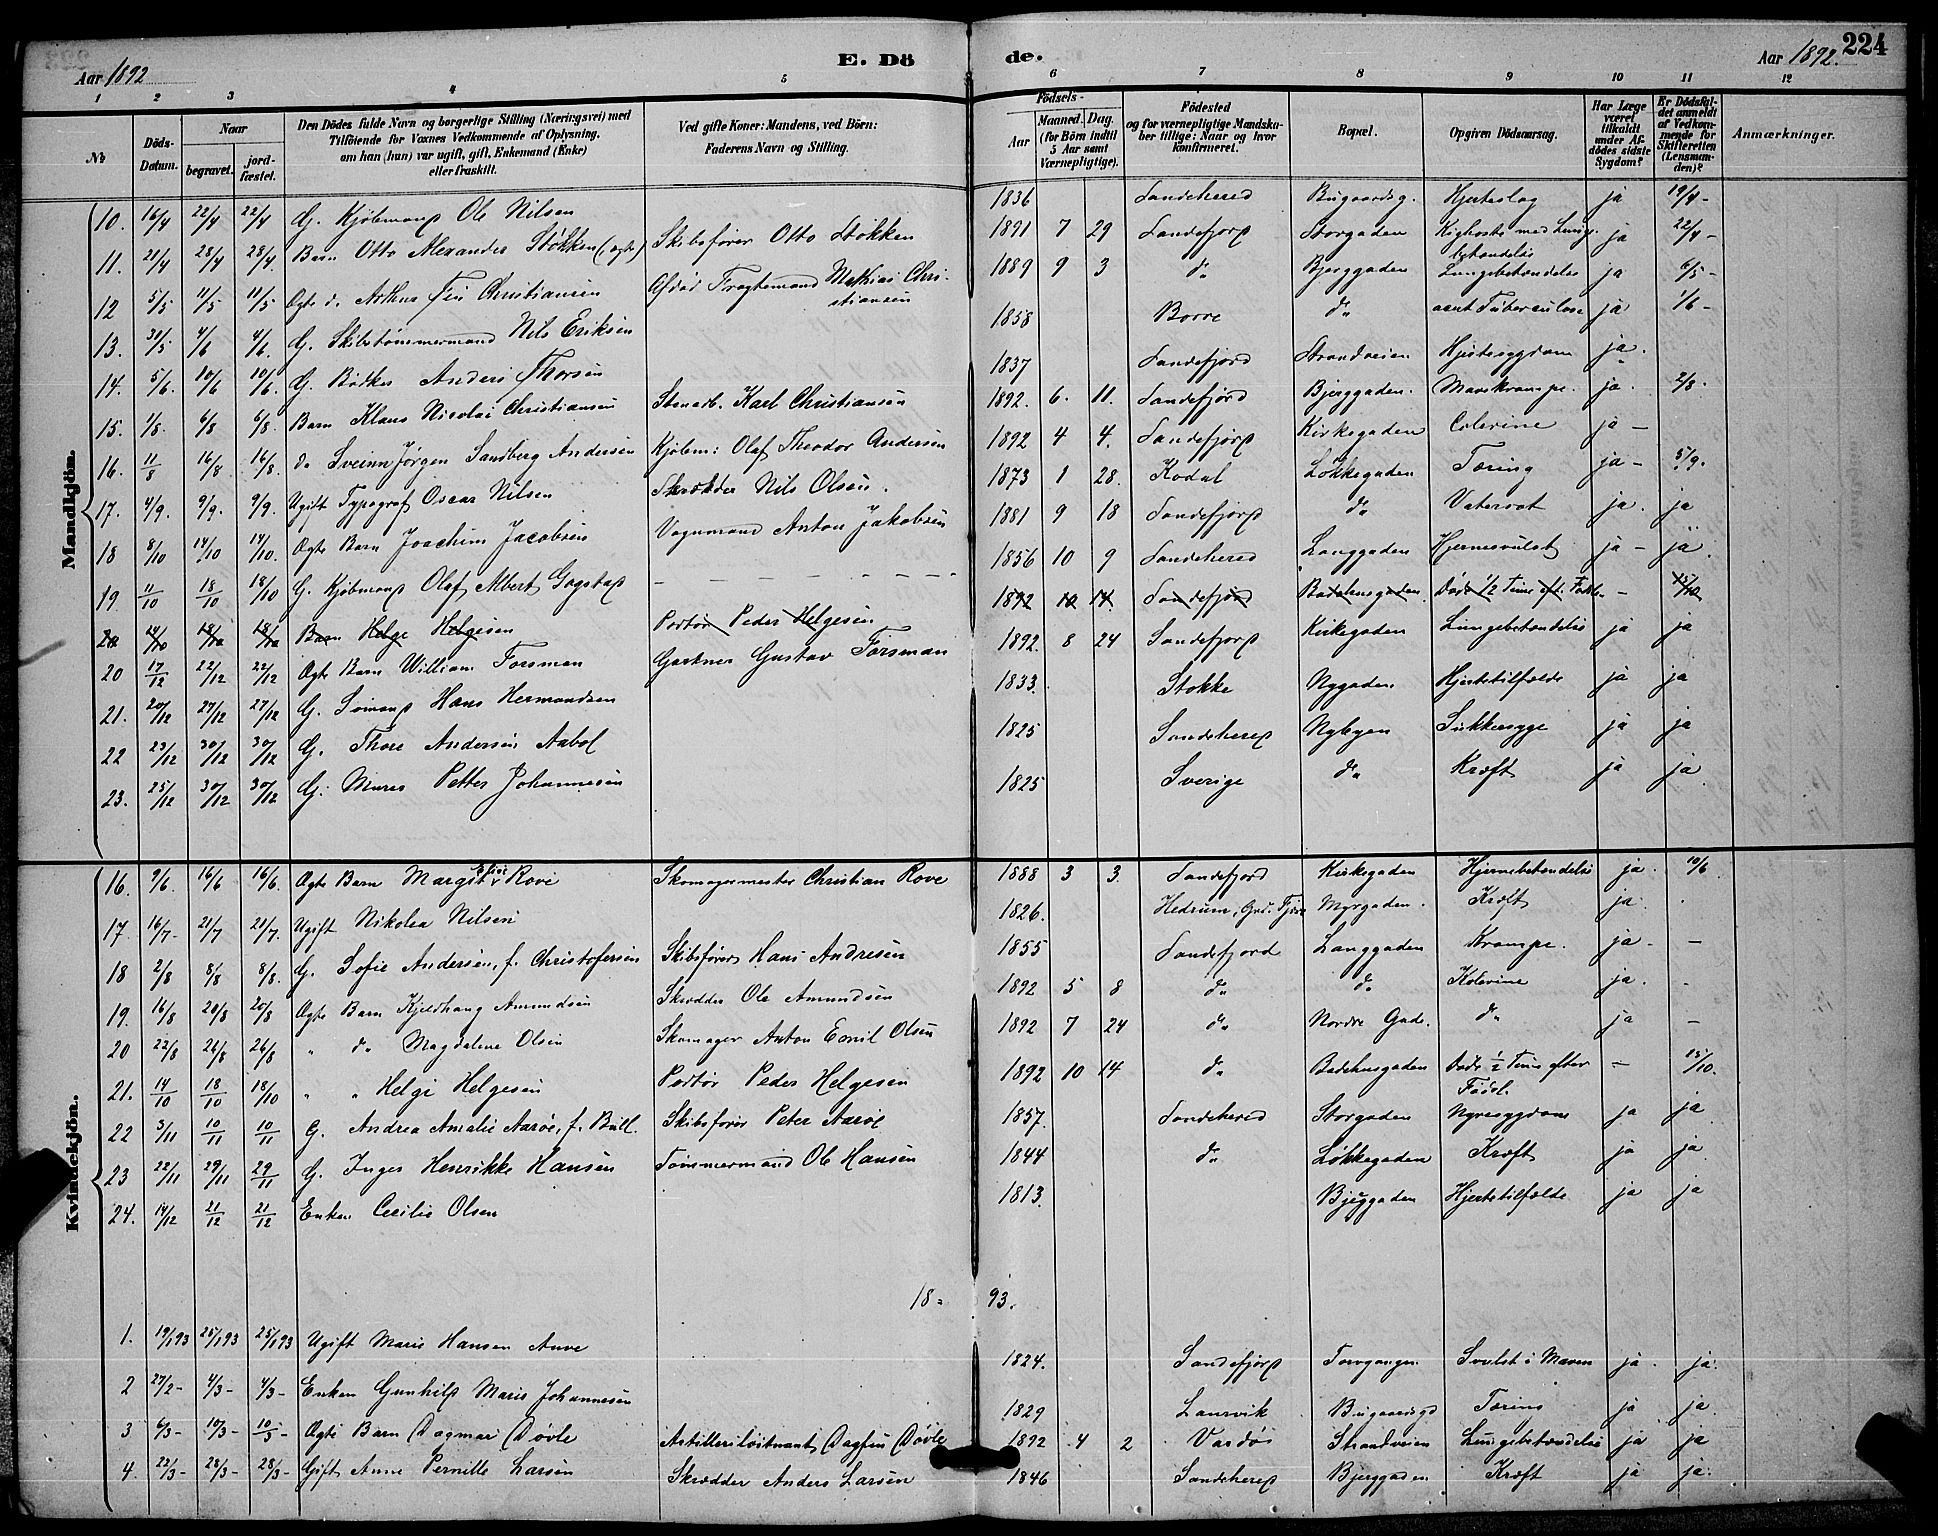 Aar 1892
E. Dö
de.
Aar 1892.
224
1 2 3 4 5 6 7 8 9 10 11 12
No
Döds-Datum.
Naar
begravet.
jord-fæstet.
Den Dödes fulde Navn og borgerlige Stilling (Næringsvei) med
Tilföiende for Voxnes Vedkommende af Oplysning,
om han (hun) var ugift, gift, Enkemand (Enke)
eller fraskilt.
Ved gifte Koner: Mandens, ved Börn:
Faderens Navn og Stilling.
Födsels-
Aar
Maaned. Dag.
(for Börn indtil
5 Aar samt
Værnepligtige).
Födested
og for værnepligtige Mandska-
ber tillige: Naar og hvor
konfirmeret.
Bopæl.
Opgiven Dödsaarsag.
Har Læge
været
tilkaldt
under Af-
dödes sidste
Sygdom?
Er Dödsfal-
det anmeldt
af Vedkom-
mende for
Skifteretten
(Lensman-
den)?
Anmærkninger.
Mandkjön.
10. 16/4 22/4 22/4 G. Kjøbmand Ole Nilsen 1836 Sandehered Bugaardsg. Hjerteslag ja 19/4 -
11. 21/4 28/4 28/4. Barn Otto Alexander Støkken (ægte) Skibsfører Otto Støkken 1891 7 29 Sandefjord Storgaden Kighoste med Lunge-betændelse ja 22/4 -
12 5/5 11/5 11/5 Ægte do Arthur Christiansen Afdød Fragtemand Mathias Christiansen 1889 9 3 do Bjerggaden Lungebetændelse ja 6/5 -
13. 31/5 4/6 4/6. G. Skibstømmermand Nils Eriksen 1858 Borre do acut Tuberculose ja 1/6 -
14. 5/6. 10/6 10/6. G. Bødker Anders Thorsen 1837 Sandefjord Strandveien Hjertesygdom ja.
15. 1/8. 6/8 6/8. Barn Klaus Nicolai Christiansen Stenarb. Karl Christiansen 1892. 6. 11. Sandefjord Bjerggaden. Mavekrampe. ja. 2/8.
16. 11/8 16/8 16/8. do Sveinn Jørgen Sandberg Andersen Kjøbm: Olaf Theodor Andersen 1892 4 4. Sandefjord Kirkegaden Colerine ja -
17. 4/9. 9/9. 9/9. Ugift Typograf Oscar Nilsen Skrædder Nils Olsen. 1873 1 28. Kodal Løkkegaden Tæring ja - 5/9.
18 8/10 14/10 14/10. Ægte Barn Joachim Jacobsen Vognmand Anton Jakobsen 1881 9 18 Sandefjord do ja. ja
19 11/10 18/10 18/10 G. Kjøbmand Olaf Albert Gogstad - - - - - - - 1856 10 9 Sandehered Langgaden Hjernesvulst ja - ja.
20 14/10 18/10 18/10 Barn Helge Helgesen Portør Peder Helgesen 1892 10 14 Sandefjord Badehusgaden Døde 1/2 Time eft. Føds. - 15/10
20 17/12 22/12 22/12 Ægte Barn William Forsman Gartner Gustav Forsman 1892. 8 24 Sandefjord Kirkegaden Lungebetændelse ja ja
21. 20/12 27/12 27/12 G. Sømand Hans Hermandsen 1833. Stokke Nygaden Hjertetilfælde ja ja
22 23/12 30/12 30/12 G. Thore Andersen Aabol 1825 Sandehered Nybyen Sukkersyge ja ja
23. 25/12 30/12 30/12 G. Murer Petter Johannesen 1825 Sverige do Kræft ja ja
Kvindekjön.
16. 9/6. 16/6 16/6. Ægte Barn Margit Rove Skomagermester Christian Rove 1888 3 3. Sandefjord Kirkegaden Hjernebetændelse ja. 10/6
17. 16/7 - 21/7 21/7. Ugift Nikolea Nilsen 1826. Hedrum, Myrgaden. Kræft ja.
18 2/8 8/8 8/8. G. Sofie Andersen, f. Christofersen Skibsfører Hans Andresen 1855 Sandefjord Langgaden Krampe. ja. -
19. 16/8 20/8 20/8 Ægte Barn Kjeldhaug Amundsen Skrædder Ole Amundsen 1892 5 8 do do Kolerine ja. -
20 22/8 26/8 26/8 " do Magdalene Olsen Skomager Anton Emil Olsen 1892 7 24 do Nordre Gade. do ja -
21. 14/10 18/10 18/10 " " Helge Helgesen Portør Peder Helgesen 1892 10 14 do Badehusgaden Døde 1/2 Time efter Fødsl. - 15/10.
22 3/11 10/11 10/11 G. Andrea Amalie Aarøe, f. Bull. Skibsfører Peter Aarøe 1857. Sandehered Storgaden Nyresygdom ja ja
23 22/11 29/11 29/11 G. Inger Henrikke Hansen Tømmermand Ole Hansen 1844 do Løkkegaden Kræft ja ja
24. 14/12 21/12 21/12 Enken Cecilie Olsen 1813. Bjerggaden Hjertetilfælde ja ja
18 = 93.
1. 19/1 93 25/1 93 25/1 93 Ugift Marie Hansen Auve 1824. Sandefjord Torvgangen Svulst i Maven ja ja.
2 27/2 - 4/3 - 4/3 - Enken Gunhild Marie Johannesen 1829 Laurvik Bugaardsgd Tæring ja ja
3 6/3 - 10/3 - 10/3 - Ægte Barn Dagmar Døvle Artillerilöitnant Dagfin Døvle 1892 4 2 Vardø Strandveien Lungebetændelse ja ja
4. 22/3 - 28/3 - 28/3 - Gift Anne Pernille Larsen Skrædder Anders Larsen 1846 Sandehered Bjerggaden Kræft ja ja.